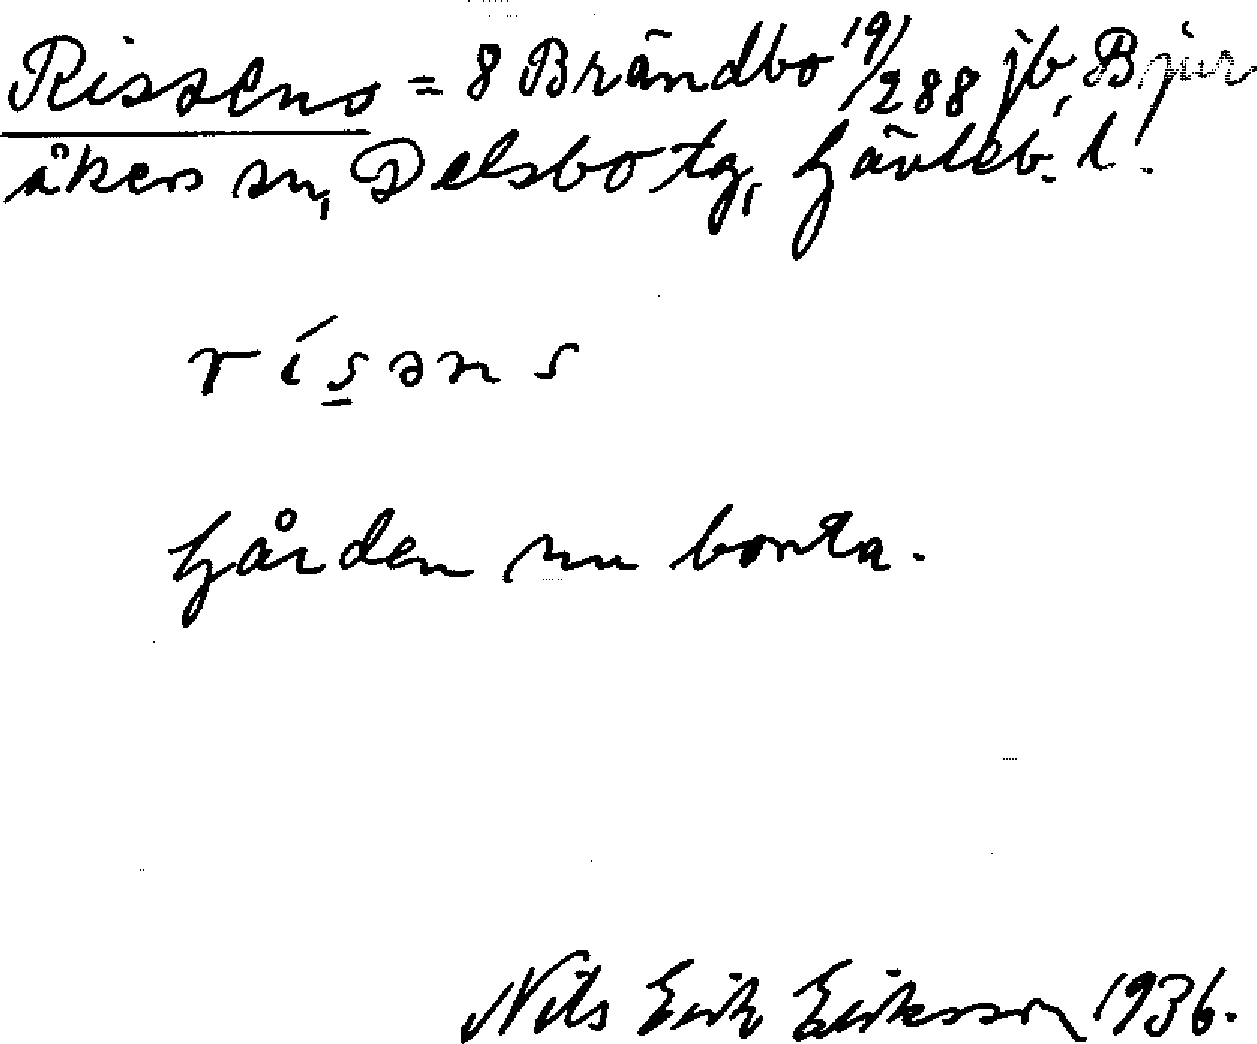 Rissens = 8 Brändbo 19/288 jb, Bjur
åkers sn, Delsbo tg, Gävleb. l.
rísəns
Gården nu borta.
Nils Erik Eriksson 1936.